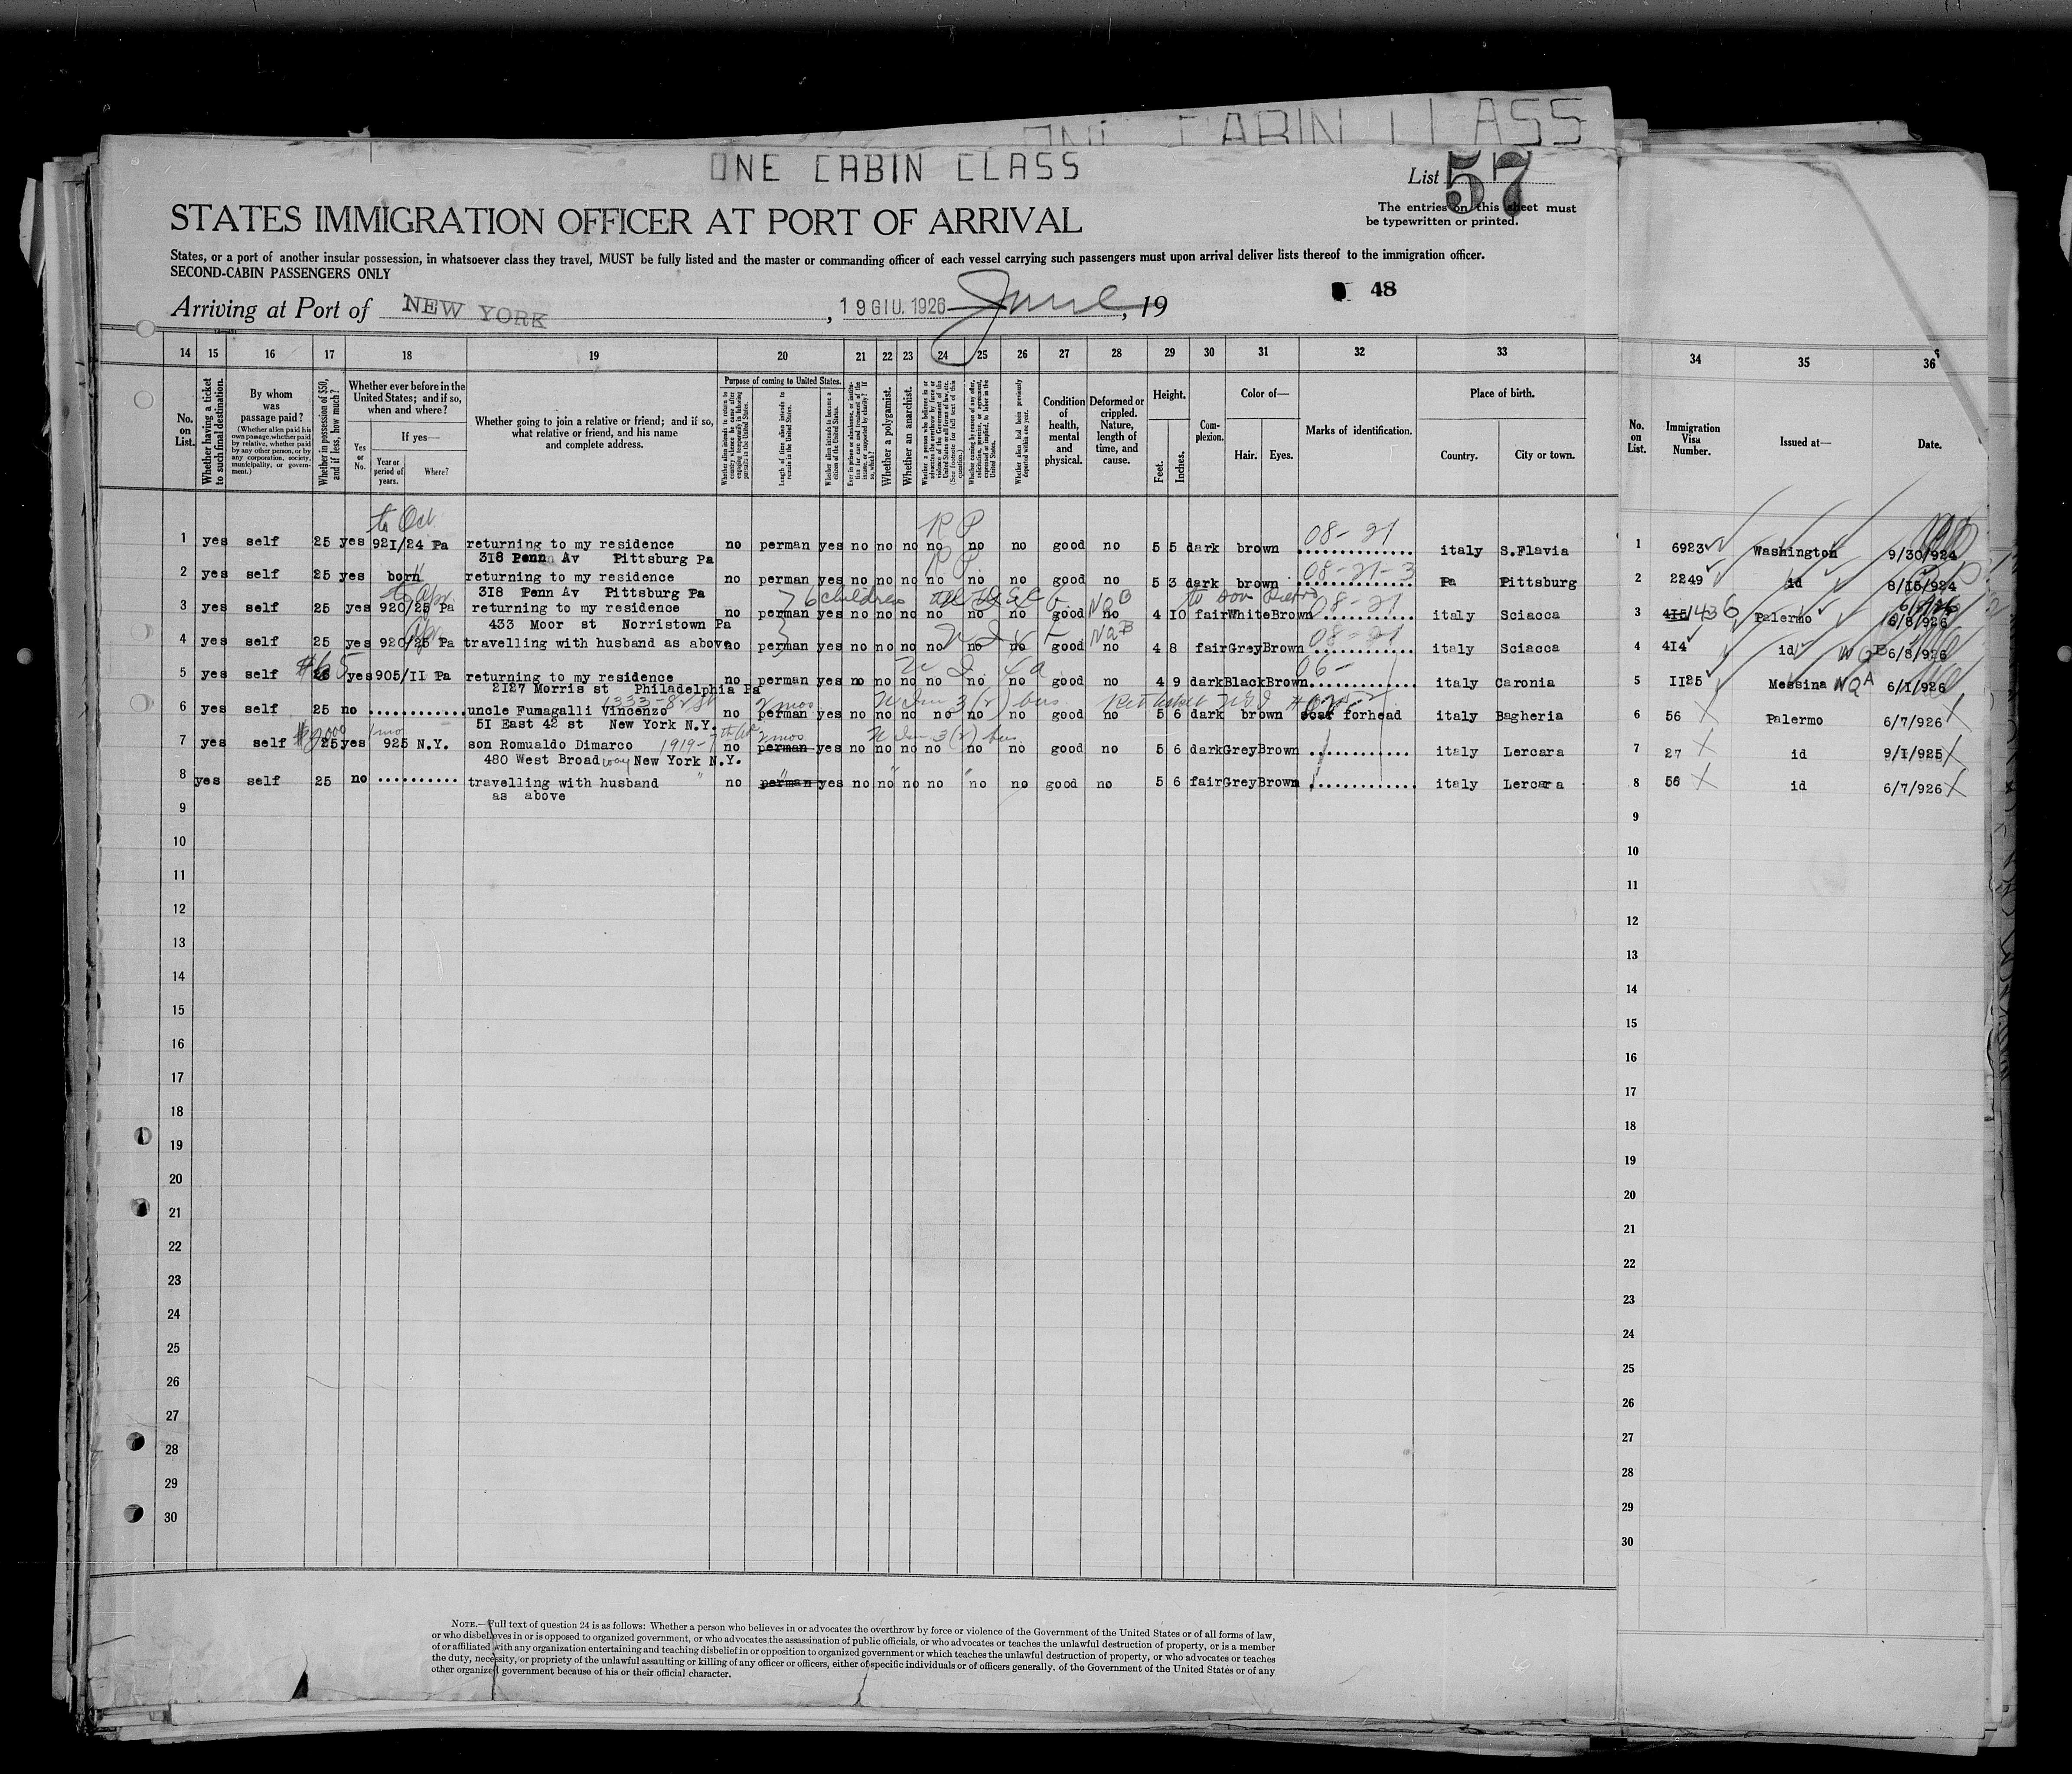 ONE CABIN CLASS
List 57
The entries on this sheet must
be typewritten or printed.
STATES IMMIGRATION OFFICER AT PORT OF ARRIVAL
States, or a port of another insular possession, in whatsoever class they travel, MUST be fully listed and the master or commanding officer of each vessel carrying such passengers must upon arrival deliver lists thereof to the immigration officer.
SECOND-CABIN PASSENGERS ONLY
48
Arriving at Port of NEW YORK, 19 GIU. 1926 June, 19
14 15 16 17 18 19 20 21 22 23 24 25 26 27 28 29 30 31 32 33 34 35 36
No. on List.
Whether having a ticket to such final destination.
By whom was passage paid?
(Whether alien paid his own passage, whether paid by relative, whether paid by any other person, or by any corporation, society, municipality, or government.)
Whether in possession of $50, and if less, how much?
Whether ever before in the United States; and if so, when and where?
Yes or No.
If yes—
Year or period of years.
Where?
Whether going to join a relative or friend; and if so, what relative or friend, and his name and complete address.
Purpose of coming to United States.
Length of time alien intends to remain in the United States.
Whether alien intends to become a citizen of the United States.
Whether a polygamist.
Whether an anarchist.
Whether alien had been previously deported within one year.
Condition of health, mental and physical.
Deformed or crippled. Nature, length of time, and cause.
Height.
Feet.
Inches.
Complexion.
Color of—
Hair.
Eyes.
Marks of identification.
Place of birth.
Country.
City or town.
No. on List.
Immigration Visa Number.
Issued at—
Date.
to Oct
R P
08-21
1 yes self 25 yes 921/24 Pa returning to my residence no perman yes no no no no no no good no 5 5 dark brown italy S.Flavia 1 6923 Washington 9/30/924
318 Penn Av Pittsburg Pa
R P
08-21-3
2 yes self 25 yes born returning to my residence no perman yes no no no no no no good no 5 3 dark brown Pa Pittsburg 2 2249 id 8/15/924
318 Penn Av Pittsburg Pa
6 children
08-21
3 yes self 25 yes 920/25 Pa returning to my residence no perman yes no no no no no no good no 4 10 fair White Brown italy Sciacca 3 415/436 Palermo 6/8/926
433 Moor st Norristown Pa
NQB
08-21
4 yes self 25 yes 920/25 Pa travelling with husband as above no perman yes no no no no no no good no 4 8 fair Grey Brown italy Sciacca 4 414 id NQB 6/8/926
#65
06-
5 yes self 25 yes 905/11 Pa returning to my residence no perman yes no no no no no no good no 4 9 dark Black Brown italy Caronia 5 1125 Messina NQA 6/1/926
2127 Morris st Philadelphia Pa
2 mos
6 yes self 25 no uncle Fumagalli Vincenzo no perman yes no no no no no no good no 5 6 dark brown scar forhead italy Bagheria 6 56 Palermo 6/7/926
51 East 42 st New York N.Y.
2 mos
7 yes self 25 yes 925 N.Y. son Romualdo Dimarco no perman yes no no no no no no good no 5 6 dark Grey Brown italy Lercara 7 27 id 9/1/925
480 West Broadway New York N.Y.
8 yes self 25 no travelling with husband no perman yes no no no no no no good no 5 6 fair Grey Brown italy Lercara 8 56 id 6/7/926
as above
9 9
10 10
11 11
12 12
13 13
14 14
15 15
16 16
17 17
18 18
19 19
20 20
21 21
22 22
23 23
24 24
25 25
26 26
27 27
28 28
29 29
30 30
NOTE.—Full text of question 24 is as follows: Whether a person who believes in or advocates the overthrow by force or violence of the Government of the United States or of all forms of law,
or who disbelieves in or is opposed to organized government, or who advocates the assassination of public officials, or who advocates or teaches the unlawful destruction of property, or is a member
of or affiliated with any organization entertaining and teaching disbelief in or opposition to organized government or which teaches the unlawful destruction of property, or who advocates or teaches
the duty, necessity, or propriety of the unlawful assaulting or killing of any officer or officers, either of specific individuals or of officers generally, of the Government of the United States or of any
other organized government because of his or their official character.